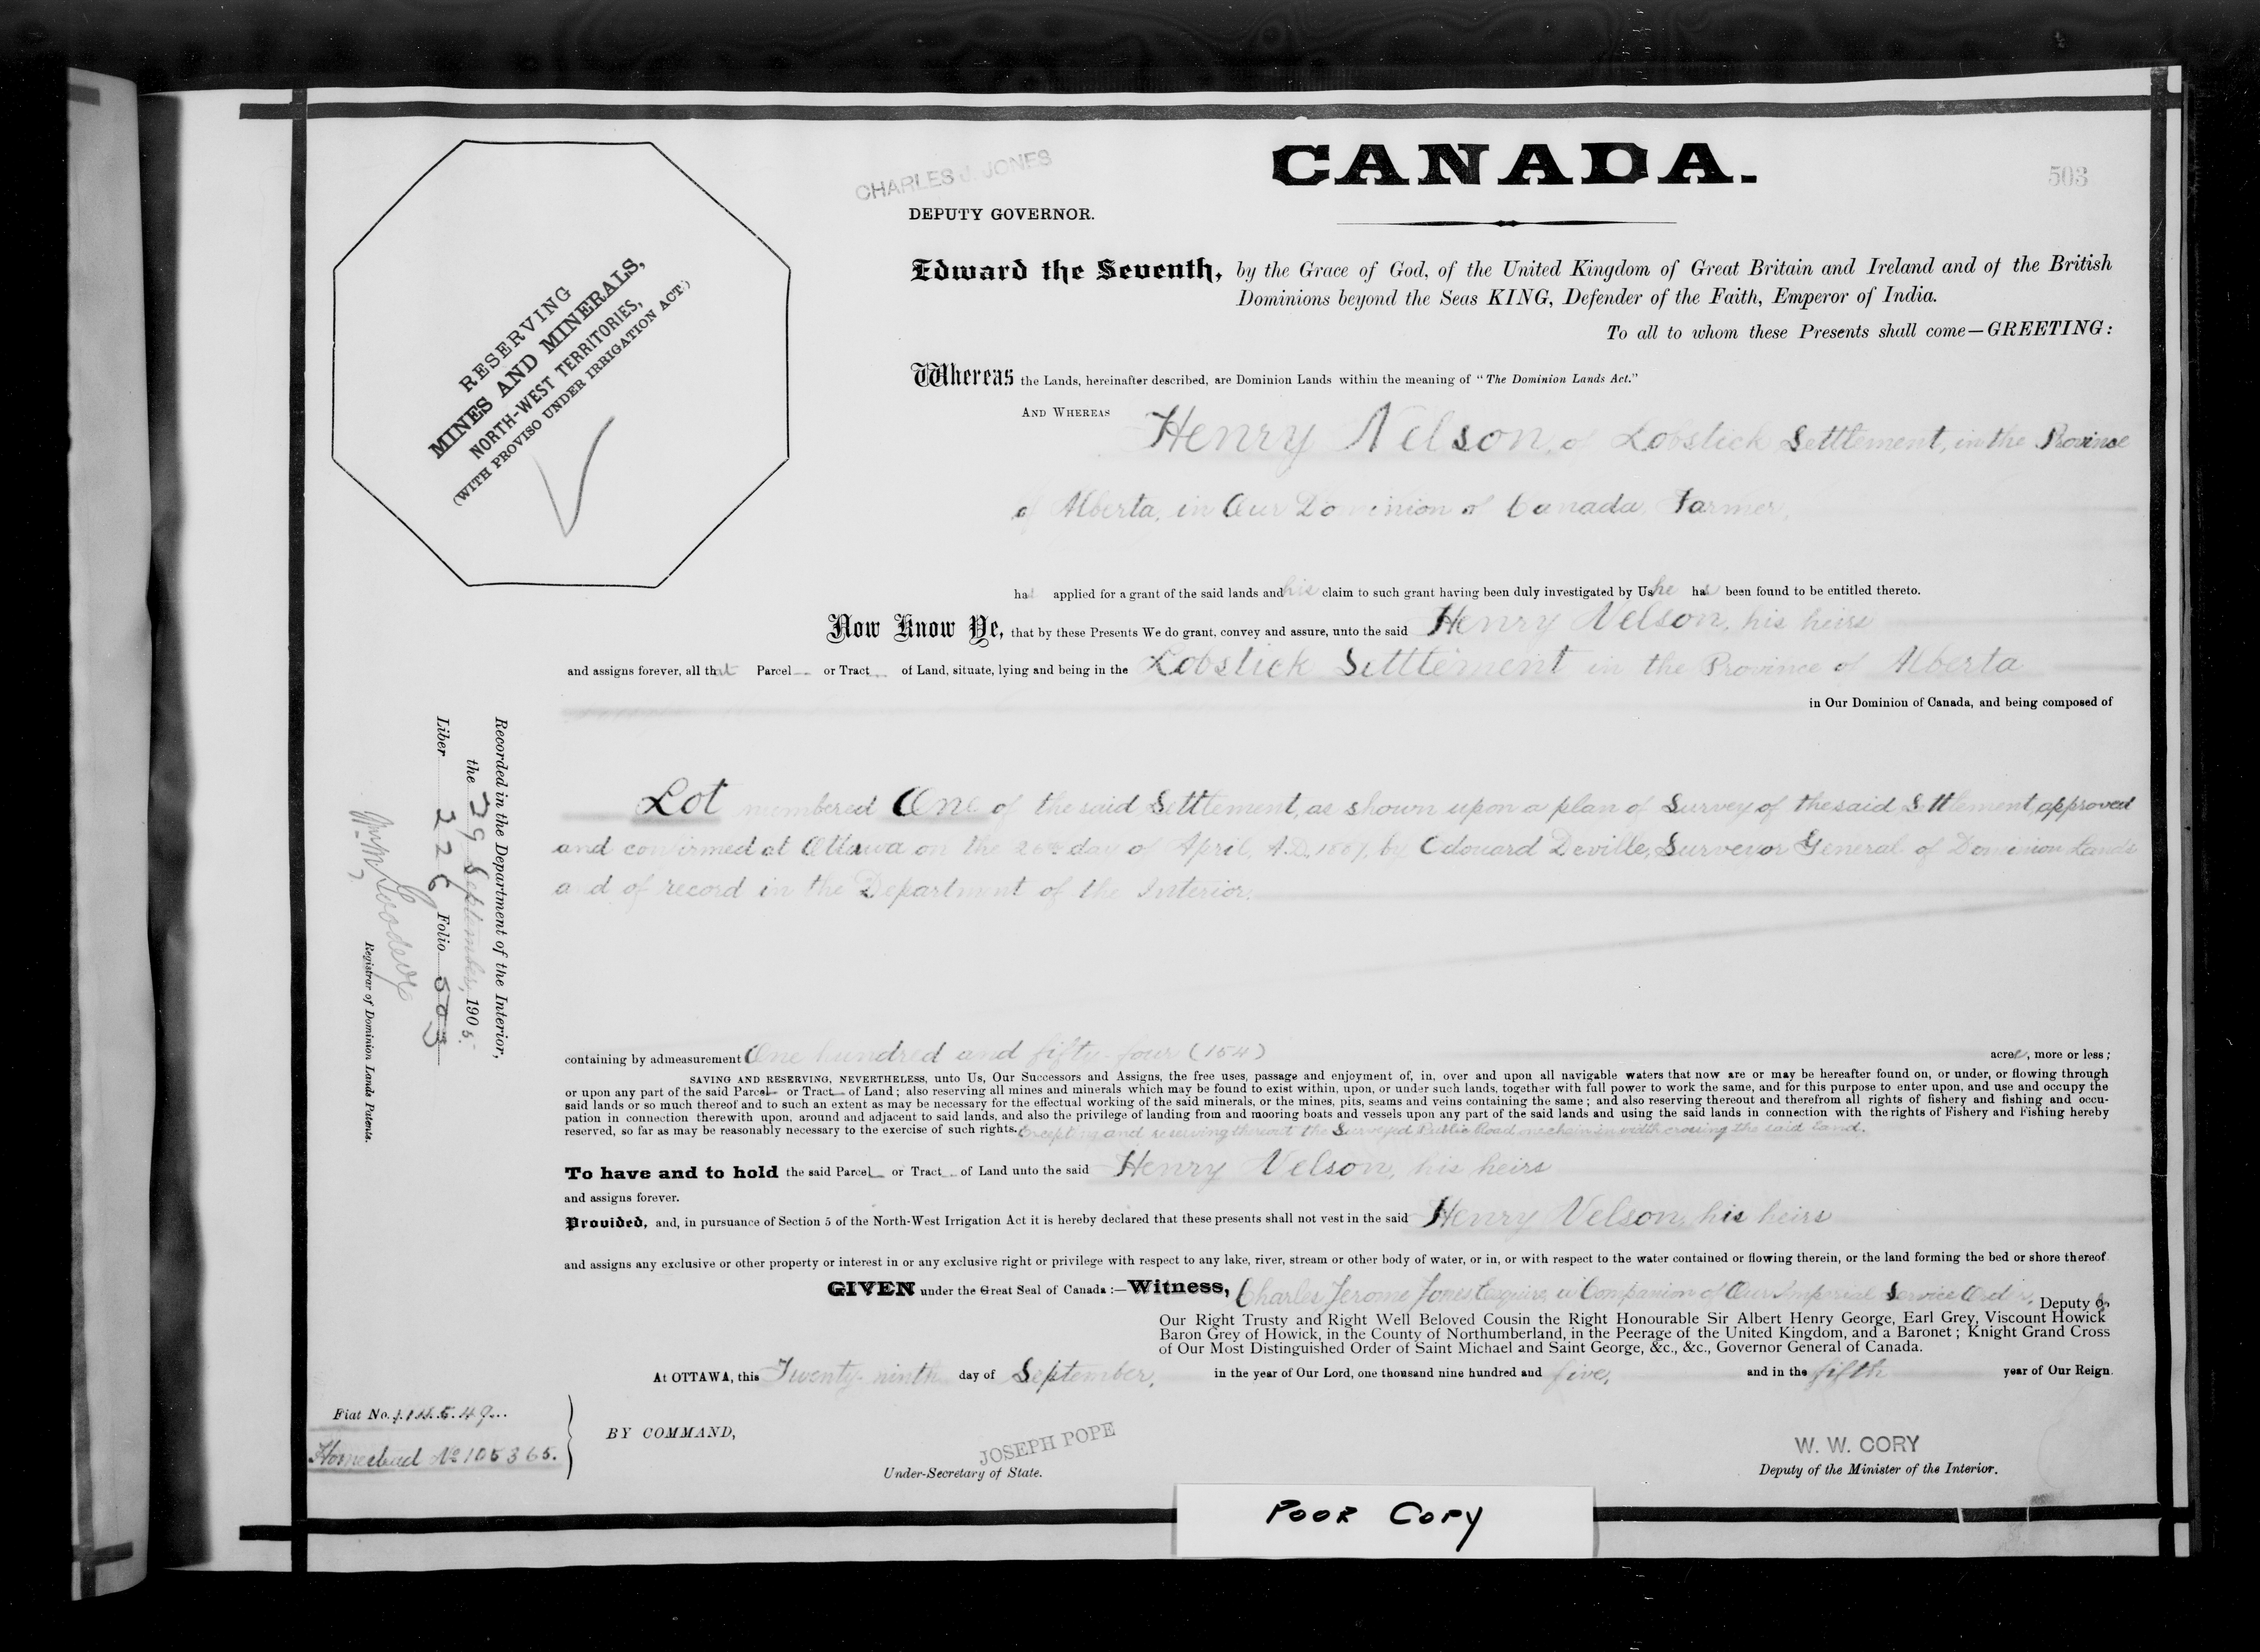 CANADA.
503
CHARLES J. JONES
DEPUTY GOVERNOR.
RESERVING
MINES AND MINERALS,
NORTH-WEST TERRITORIES,
(WITH PROVISO UNDER IRRIGATION ACT.)
Edward the Seventh, by the Grace of God, of the United Kingdom of Great Britain and Ireland and of the British
Dominions beyond the Seas KING, Defender of the Faith, Emperor of India.
To all to whom these Presents shall come—GREETING:
Whereas the Lands, hereinafter described, are Dominion Lands within the meaning of "The Dominion Lands Act."
AND WHEREAS Henry Nelson, of Lobstick Settlement, in the Province
of Alberta, in Our Dominion of Canada, Farmer,
has applied for a grant of the said lands and his claim to such grant having been duly investigated by Us, he has been found to be entitled thereto.
Now Know Ye, that by these Presents We do grant, convey and assure, unto the said Henry Nelson, his heirs
and assigns forever, all that Parcel or Tract of Land, situate, lying and being in the Lobstick Settlement in the Province of Alberta
in Our Dominion of Canada, and being composed of
Lot numbered One of the said Settlement, as shown upon a plan of Survey of the said Settlement, approved
and confirmed at Ottawa on the day of April, A.D. by Edouard Deville, Surveyor General of Dominion Lands
and of record in the Department of the Interior.
containing by admeasurement One hundred and fifty-four (154) acres, more or less;
SAVING AND RESERVING, NEVERTHELESS, unto Us, Our Successors and Assigns, the free uses, passage and enjoyment of, in, over and upon all navigable waters that now are or may be hereafter found on, or under, or flowing through
or upon any part of the said Parcel or Tract of Land; also reserving all mines and minerals which may be found to exist within, upon, or under such lands, together with full power to work the same, and for this purpose to enter upon, and use and occupy the
said lands or so much thereof and to such an extent as may be necessary for the effectual working of the said minerals, or the mines, pits, seams and veins containing the same; and also reserving thereout and therefrom all rights of fishery and fishing and occu-
pation in connection therewith upon, around and adjacent to said lands, and also the privilege of landing from and mooring boats and vessels upon any part of the said lands and using the said lands in connection with the rights of Fishery and Fishing hereby
reserved, so far as may be reasonably necessary to the exercise of such rights. Excepting and reserving thereout the Surveyed Public Road one chain in width crossing the said Land.
To have and to hold the said Parcel or Tract of Land unto the said Henry Nelson, his heirs
and assigns forever.
Provided, and, in pursuance of Section 5 of the North-West Irrigation Act it is hereby declared that these presents shall not vest in the said Henry Nelson, his heirs
and assigns any exclusive or other property or interest in or any exclusive right or privilege with respect to any lake, river, stream or other body of water, or in, or with respect to the water contained or flowing therein, or the land forming the bed or shore thereof.
GIVEN under the Great Seal of Canada :—Witness, Charles Jerome Jones Esquire, a Companion of Our Imperial Service Order, Deputy of
Our Right Trusty and Right Well Beloved Cousin the Right Honourable Sir Albert Henry George, Earl Grey, Viscount Howick
Baron Grey of Howick, in the County of Northumberland, in the Peerage of the United Kingdom, and a Baronet; Knight Grand Cross
of Our Most Distinguished Order of Saint Michael and Saint George, &c., &c., Governor General of Canada.
At OTTAWA, this Twenty-ninth day of September, in the year of Our Lord, one thousand nine hundred and five, and in the fifth year of Our Reign.
Fiat No.
Homestead No 105365.
BY COMMAND,
JOSEPH POPE
Under-Secretary of State.
W. W. CORY
Deputy of the Minister of the Interior.
Recorded in the Department of the Interior,
the 29 September, 1905.
Liber 226 Folio 503
Registrar of Dominion Lands Patents.
POOR COPY